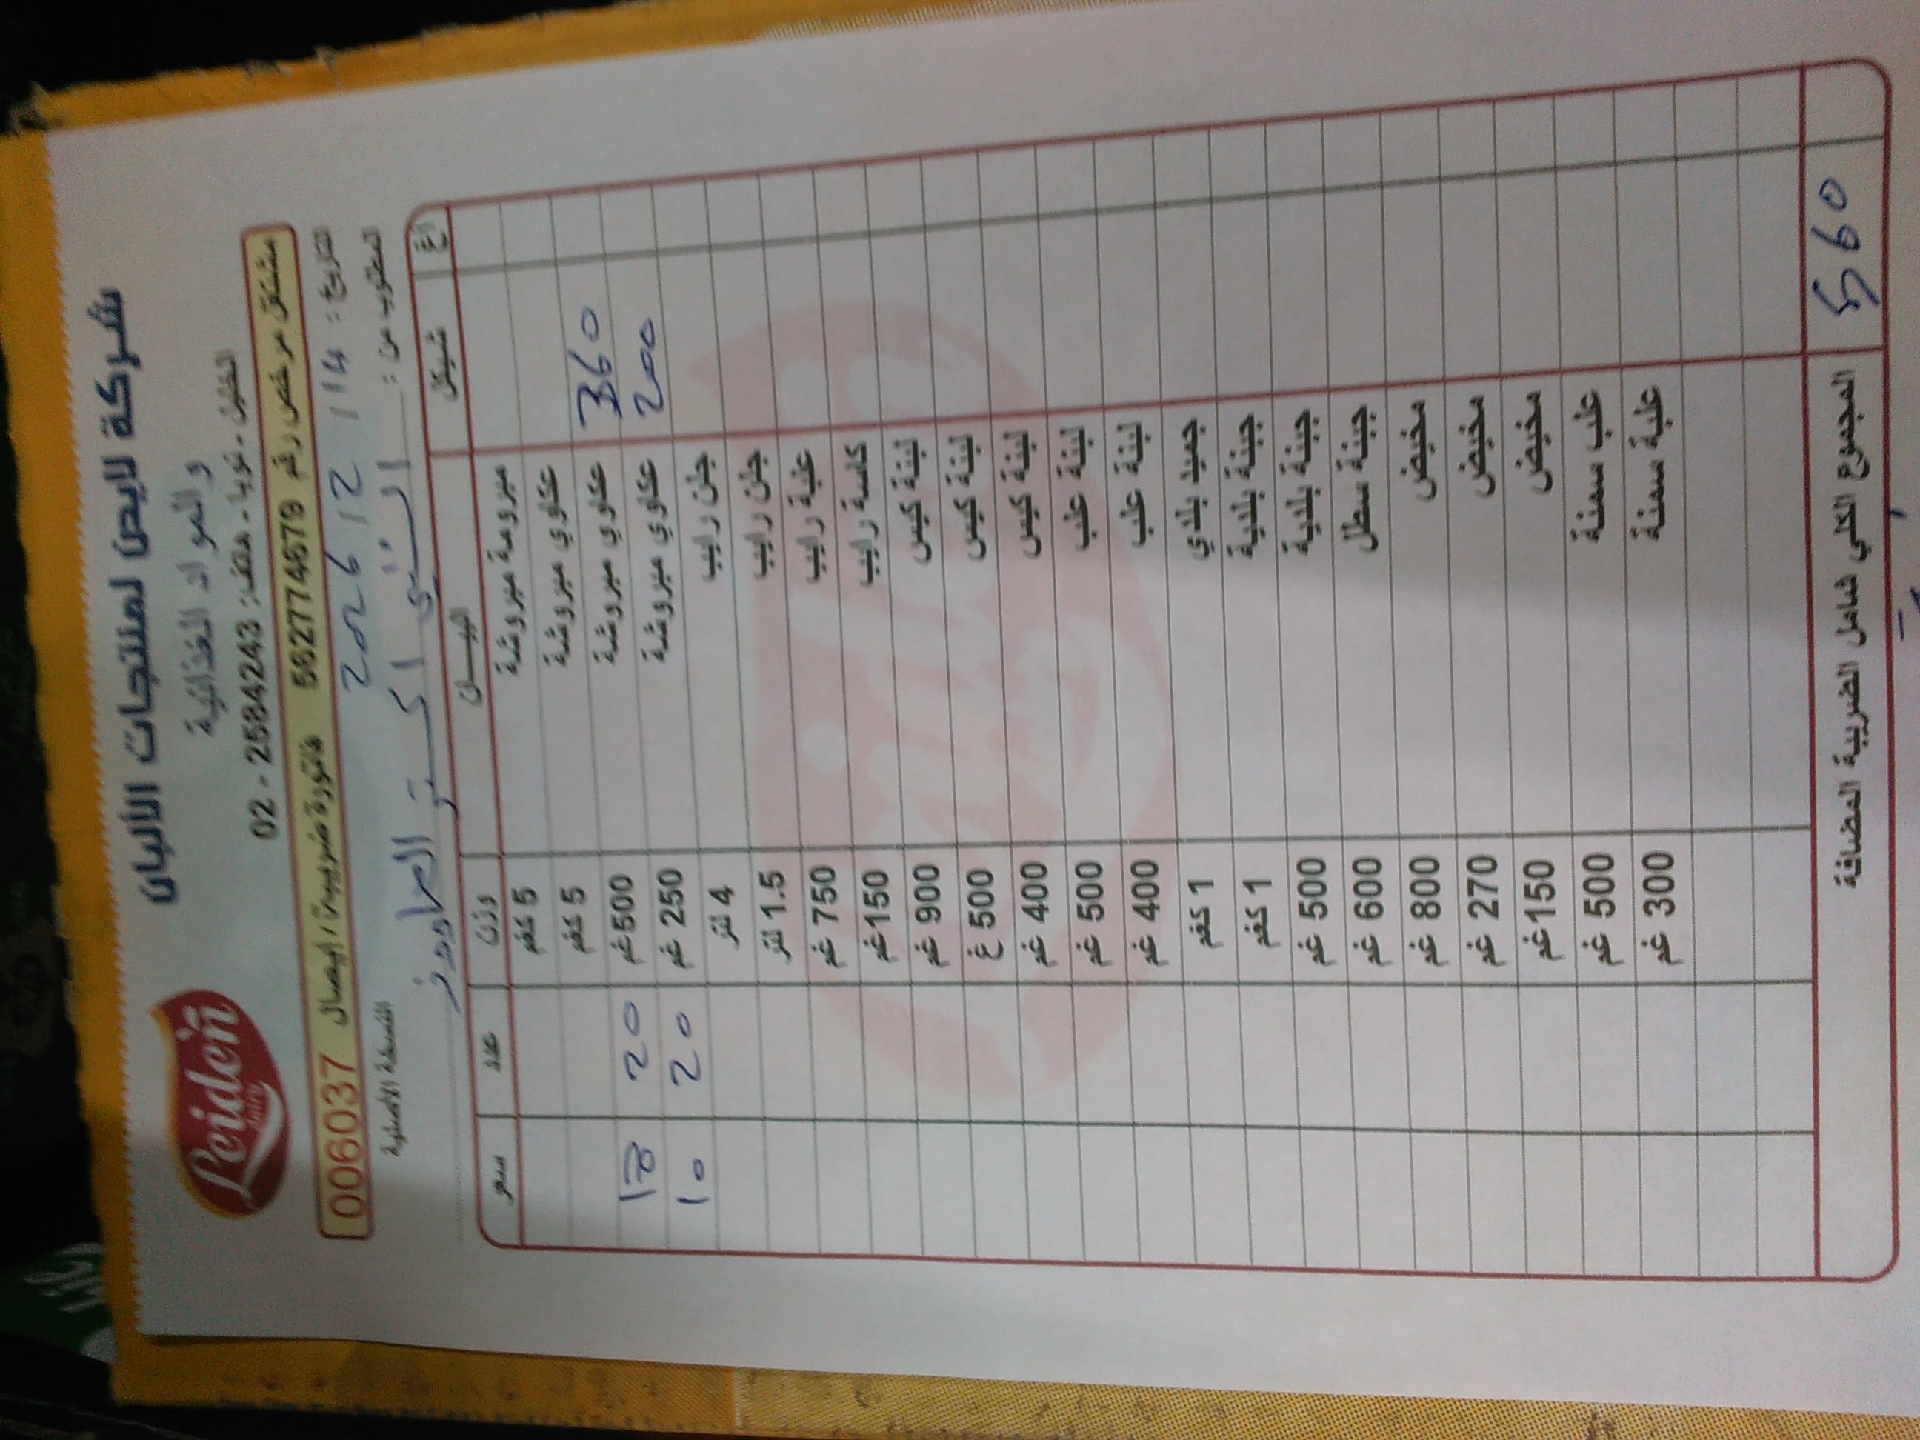 شركة لايدن لمنتجات الألبان
والمواد الغذائية
الخليل - نوبا - هاتف: 2584243 - 02
Leiden
مشتغل مرخص رقم 562774679 فاتورة ضريبية / إيصال 006037
التاريخ: 14 / 12 / 2026
النسخة الأصلية
المطلوب من:
سعر عدد وزن البيـــان شيكل اغ
5 كغم مبرومة مبروشة
5 كغم عكاوي مبروشة
18 20 500غم عكاوي مبروشة 360
10 20 250 غم عكاوي مبروشة 200
4 لتر جلن رايب
1.5 لتر جلن رايب
750 غم علبة رايب
150غم كاسة رايب
900 غم لبنة كيس
500 غ لبنة كيس
400 غم لبنة كيس
500 غم لبنة علب
400 غم لبنة علب
1 كغم جميد بلدي
1 كغم جبنة بلدية
500 غم جبنة بلدية
600 غم جبنة سطل
800 غم مخيض
270 غم مخيض
150غم مخيض
500 غم علب سمنة
300 غم علبة سمنة
المجموع الكلي شامل الضريبة المضافة 560